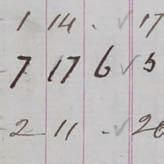 1 14 . ✓ 17
7 17 6 ✓ 5
2 11 . ✓ 26